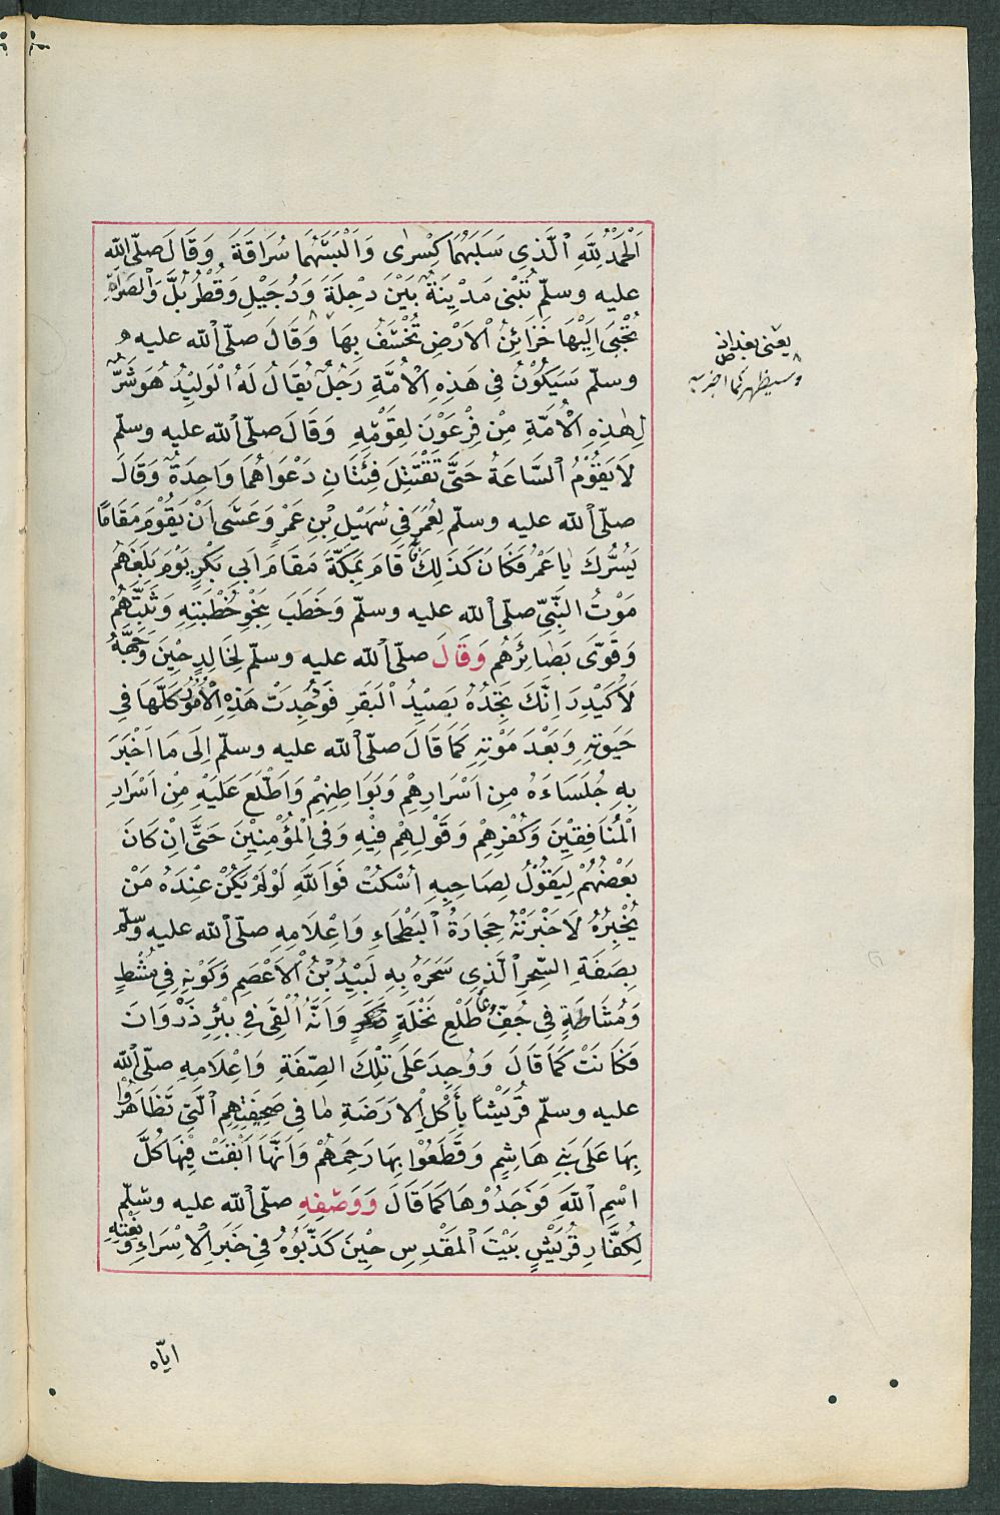 اَلْحَمْدُ لِلّٰهِ الَّذِي سَلَبَهُمَا كِسْرٰى وَاَلْبَسَهُمَا سُرَاقَةَ وَقَالَ صلّى الله
عليه وسلّم تُبْنٰى مَدِينَةٌ بَيْنَ دِجْلَةَ وَدُجَيْلٍ وَقُطْرُبُلَّ وَالصَّرَاةِ
تُجْبٰى اِلَيْهَا خَزَائِنُ الْاَرْضِ تُخْسَفُ بِهَا وَقَالَ صلّى الله عليه
وسلّم سَيَكُوْنُ فِي هَذِهِ الْاُمَّةِ رَجُلٌ يُقَالُ لَهُ الْوَلِيْدُ هُوَ شَرٌّ
لِهٰذِهِ الْاُمَّةِ مِنْ فِرْعَوْنَ لِقَوْمِهِ وَقَالَ صلّى الله عليه وسلّم
لَا يَقُوْمُ السَّاعَةُ حَتَّى تَقْتَتِلَ فِئَتَانِ دَعْوَاهُمَا وَاحِدَةٌ وَقَالَ
صلّى الله عليه وسلّم لِعُمَرَ فِي سُهَيْلِ بْنِ عَمْرٍ وَعَسَى اَنْ يَقُوْمَ مَقَامًا
يَسُرُّكَ يَا عُمَرُ فَكَانَ كَذَلِكَ قَامَ بِمَكَّةَ مَقَامَ اَبِي بَكْرٍ يَوْمَ بَلَغَهُمْ
مَوْتُ النَّبِيِّ صلّى الله عليه وسلّم وَخَطَبَ بِنَحْوِ خُطْبَتِهِ وَثَبَّتَهُمْ
وَقَوَّى بَصَائِرَهُم وَقَالَ صلّى الله عليه وسلّم لِخَالِدٍ حِيْنَ وَجَّهَهُ
لَاُكَيْدِرَ اِنَّكَ تَجِدُهُ يَصِيْدُ الْبَقَرَ فَوُجِدَتْ هَذِهِ الْاُمُوْرُ كُلُّهَا فِي
حَيٰوتِهِ وَبَعْدَ مَوْتِهِ كَمَا قَالَ صلّى الله عليه وسلّم اِلَى مَا اَخْبَرَ
بِهِ جُلَسَاءَهُ مِن اَسْرَارِهِمْ وَبَوَاطِنِهِمْ وَاَطْلَعَ عَلَيْهِ مِنْ اَسْرَارِ
الْمُنَافِقِيْنَ وَكُفْرِهِمْ وَقَوْلِهِمْ فِيْهِ وَفِي الْمُؤْمِنِيْنَ حَتَّى اِنْ كَانَ
بَعْضُهُمْ لِيَقُوْلُ لِصَاحِبِهِ اُسْكُتْ فَوَاللّٰهِ لَوْ لَمْ يَكُنْ عِنْدَهُ مَنْ
يُخْبِرُهُ لَاَخْبَرَتْهُ حِجَارَةُ الْبَطْحَاءِ وَاِعْلَامِهِ صلّى الله عليه وسلّم
بِصِفَةِ السِّحْرِ الَّذِي سَحَرَهُ بِهِ لَبِيْدُ بْنُ الْاَعْصَمِ وَكَوْنِهِ فِي مُشْطٍ
وَمُشَاطَةٍ فِي جُفِّ طَلْعِ نَخْلَةٍ ذَكَرٍ وَاَنَّهُ اُلْقِيَ فِي بِئْرِ ذَرْوَانَ
فَكَانَتْ كَمَا قَالَ وَوُجِدَ عَلَى تِلْكَ الصِّفَةِ وَاِعْلَامِهِ صلّى الله
عليه وسلّم قُرَيْشاً بِأَكْلِ الْاَرَضَةِ مَا فِي صَحِيْفَتِهِم الَّتِي تَظَاهَرُوْا
بِهَا عَلَى بَنِي هَاشِمٍ وَقَطَعُوْا بِهَا رَحِمَهُمْ وَاَنَّهَا اَبْقَتْ فِيْهَا كُلَّ
اسْمِ اللّٰهِ فَوَجَدُوْهَا كَمَا قَالَ وَوَصْفِهِ صلّى الله عليه وسلّم
لِكُفَّارِ قُرَيْشٍ بَيْتَ الْمَقْدِسِ حِيْنَ كَذَّبُوْهُ فِي خَبَرِ الْاِسْرَاءِ وَنَعْتِهِ
ايّاه
يعنى بغداد
وسيظهر كما اخبر به